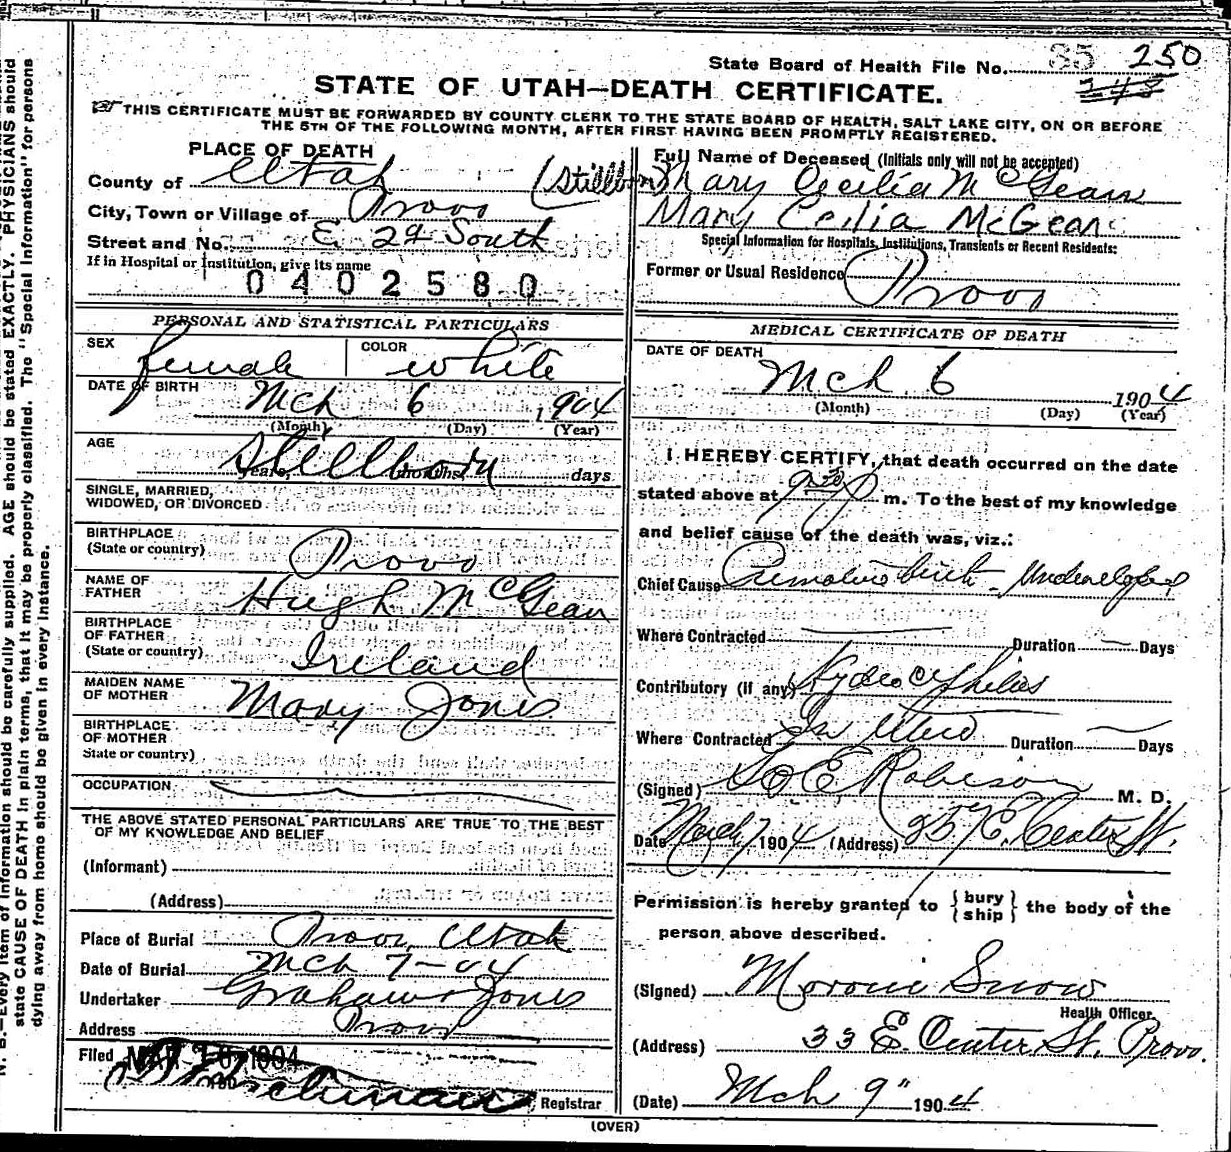 State Board of Health File No. 85 250
STATE OF UTAH—DEATH CERTIFICATE.
THIS CERTIFICATE MUST BE FORWARDED BY COUNTY CLERK TO THE STATE BOARD OF HEALTH, SALT LAKE CITY, ON OR BEFORE
THE 5TH OF THE FOLLOWING MONTH, AFTER FIRST HAVING BEEN PROMPTLY REGISTERED.
PLACE OF DEATH
County of Utah (Stillborn)
City, Town or Village of Provo
Street and No. E. 2d South
If in Hospital or Institution, give its name
0402580
Full Name of Deceased (Initials only will not be accepted)
Mary Cecilia McGean
Mary Cecilia McGean
Special Information for Hospitals, Institutions, Transients or Recent Residents:
Former or Usual Residence Provo
PERSONAL AND STATISTICAL PARTICULARS
SEX female COLOR white
DATE OF BIRTH Mch 6 1904
(Month) (Day) (Year)
AGE Stillborn years, months, days
SINGLE, MARRIED,
WIDOWED, OR DIVORCED
BIRTHPLACE
(State or country) Provo
NAME OF
FATHER Hugh McGean
BIRTHPLACE
OF FATHER
(State or country) Ireland
MAIDEN NAME
OF MOTHER Mary Jones
BIRTHPLACE
OF MOTHER
State or country)
OCCUPATION
THE ABOVE STATED PERSONAL PARTICULARS ARE TRUE TO THE BEST
OF MY KNOWLEDGE AND BELIEF
(Informant)
(Address)
Place of Burial Provo, Utah
Date of Burial Mch 7-04
Undertaker Graham & Jones
Address Provo
Filed MAR 10 1904
Registrar
MEDICAL CERTIFICATE OF DEATH
DATE OF DEATH
Mch 6 1904
(Month) (Day) (Year)
I HEREBY CERTIFY, that death occurred on the date
stated above at 9 30 P m. To the best of my knowledge
and belief cause of the death was, viz.:
Chief Cause Premature birth - Undeveloped
Where Contracted Duration Days
Contributory (If any) Hydrocephelus
Where Contracted In Utero Duration Days
(Signed) E Robison M. D.
Date March 7 1904 (Address) E. Center St.
Permission is hereby granted to {bury
ship} the body of the
person above described.
(Signed) Moroni Snow
Health Officer
(Address) 33 E. Center St. Provo.
(Date) Mch 9" 1904
(OVER)
N. B.—Every item of information should be carefully supplied. AGE should be stated EXACTLY. PHYSICIANS should
state CAUSE OF DEATH in plain terms, that it may be properly classified. The "Special Information" for persons
dying away from home should be given in every instance.